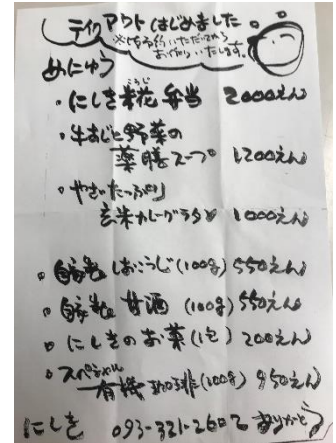 テイクアウトはじめました
※ご予約いただいてから
おつくりいたします。
めにゅう
・にしき糀弁当 2000えん
こうじ
・牛すじと野菜の
薬膳スープ 1200えん
・やさいたっぷり
玄米カレーグラタン 1000えん
・自家製しおこうじ(100g) 550えん
・自家製 甘酒 (100g) 550えん
・にしきのお茶(1包) 200えん
・スペシャル
有機珈琲(100g) 950えん
にしき 093-321-2602 ありがとう